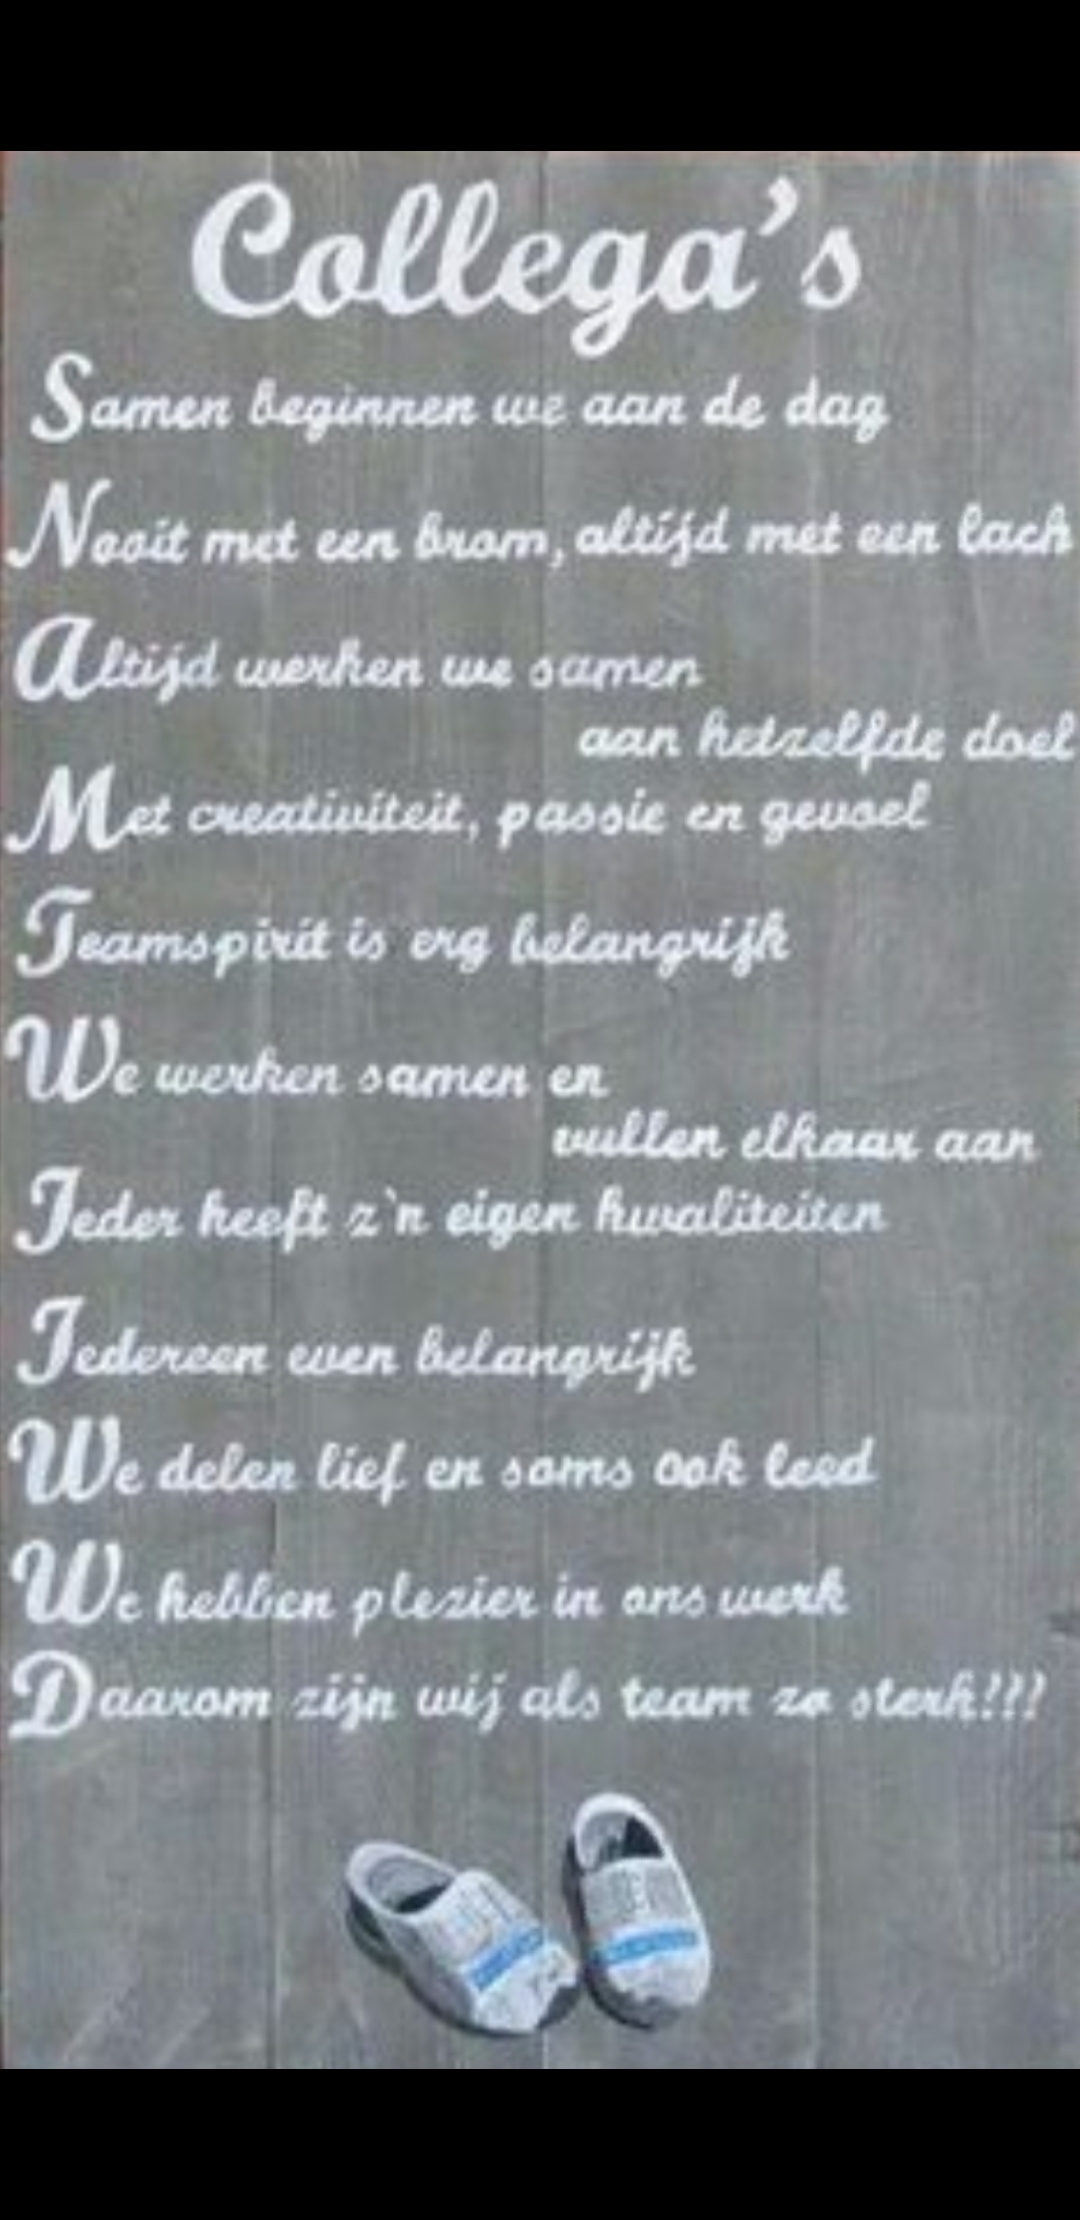 Collega's
Samen beginnen we aan de dag
Nooit met een brom, altijd met een lach
Altijd werken we samen
aan hetzelfde doel
Met creativiteit, passie en gevoel
Teamspirit is erg belangrijk
We werken samen en
vullen elkaar aan
Ieder heeft z`n eigen kwaliteiten
Iedereen even belangrijk
We delen lief en soms ook leed
We hebben plezier in ons werk
Daarom zijn wij als team zo sterk!!!